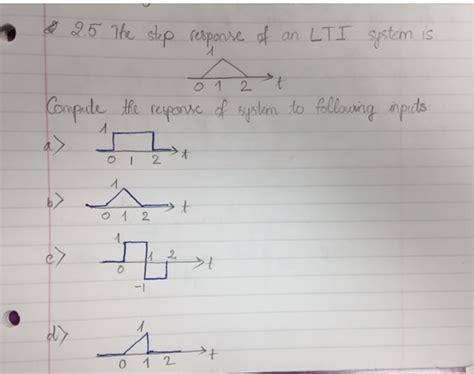 2.5 The step response of an LTI system is
1
0 1 2 t
Compute the response of system to following inputs
a>
1
0 1 2 t
b>
1
0 1 2 t
c>
1
0 1 2 t
-1
d>
1
0 1 2 t